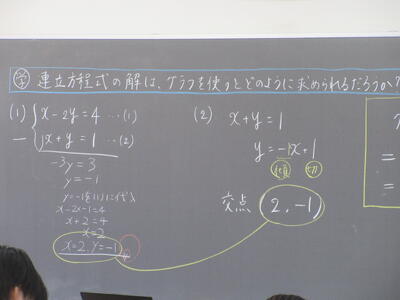 学 連立方程式の解は、グラフを使うとどのように求められるだろうか?
(1) x-2y=4 …(1)
- )x+y=1 …(2)
-3y=3
y=-1
y=-1を(1)に代入
x-2×-1=4
x+2=4
x=2
x=2, y=-1
(2)
x+y=1
y=-1x+1
傾 切
交点 (2, -1)
=
=